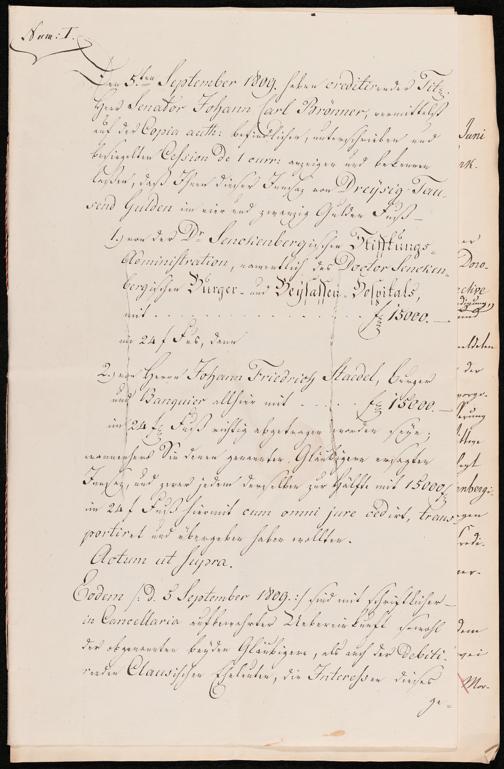 Num: I.
Den 5ten September 1809. haben creditirendes Titz.
Herr Senator Johann Carl Brönner, vermittelst
auf der Copia auth: befindlichen, unterschrieben und
besiegelten Cession de 1 curr: anzeigen und bekennen
laßen, daß Ihm dieser Insatz von Dreyßig Tau-
send Gulden im vier und zwanzig Gulden Fuß
1.) von der Dr Senckenbergischen Stifftungs-
Administration, namentlich des Doctor Sencken-
bergischen Burger- und Beysassen-Hospitals,
mit . . . . . . . . . . f 15000.
im 24 f Fus, dann
2.) von Herrn Johann Friedrich Staedel, burger
und Banquier allhier mit . . . . . f 15000.
im 24 f Fuß richtig abgetragen worden seye;
wannenhero Sie denen genannten Gläubigern ersagten
Insatz, und zwar jedem derselben zur Hälfte mit 15000 f
im 24 f Fuß hiermit cum omni jure cedirt, trans-
portiret und übergeben haben wollten.
Actum ut supra.
Eodem /: d. 5 September 1809. :/ sind mit schriftlicher
in Cancellaria aufbewahrter Uebereinkunft sowohl
der obgenannten beyden Gläubigern, als auch der debiti-
renden Clausischen Eheleuten, die Interessen dieses
ge-
Juni